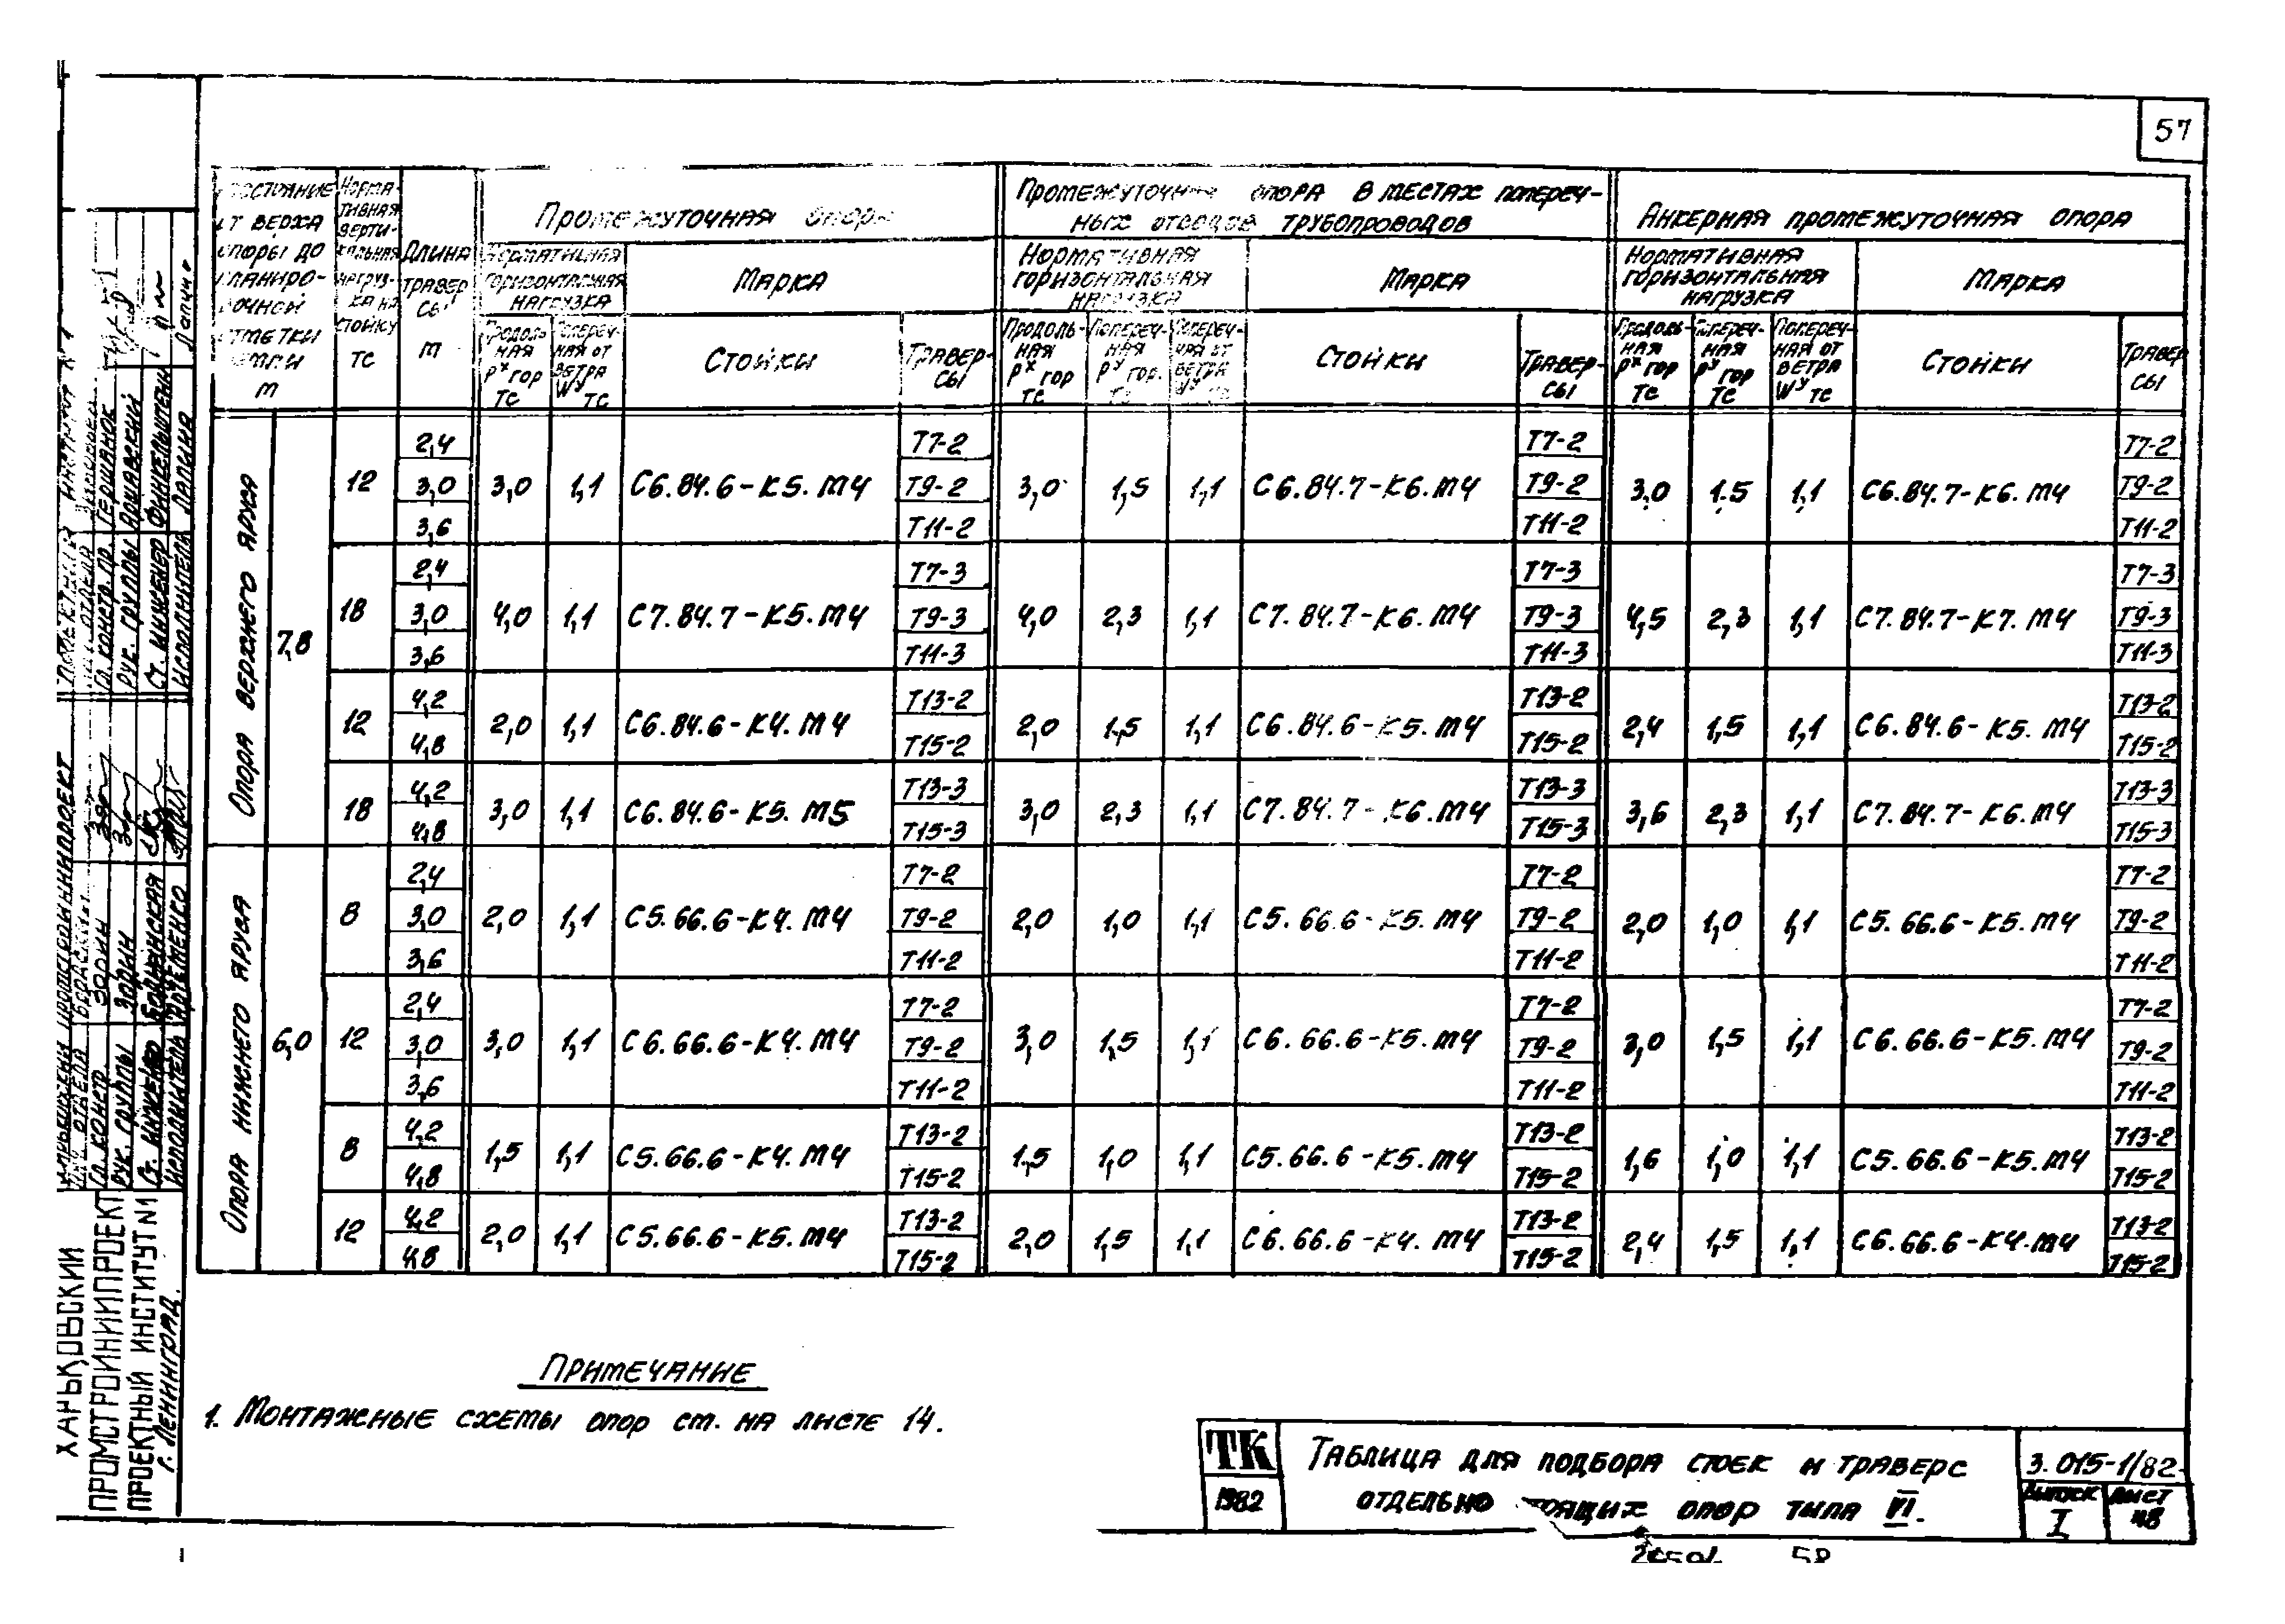 57
Промежуточная опора в местах попереч-
ных отводов трубопроводов
Промежуточная опора
Анкерная промежуточная опора
Норма-
тивная
верти-
кальная
нагруз-
ка на
стойку
тс
Длина
травер
сы
м
от верха
опоры до
отметки
земли
м
нагрузка
Марка
Нормативная
горизонтальная
нагрузка
Марка
Нормативная
горизонтальная
нагрузка
Марка
Продоль
ная
Рх гор
тс
Попереч-
ная от
ветра
Wу тс
Стойки
Травер-
сы
Продоль-
ная
Рх гор
тс
Попереч-
ная
Ру гор.
тс
Попереч-
ная от
ветра
Стойки
Травер-
сы
Продоль-
ная
Рх гор
тс
Попереч-
ная
Ру гор
тс
Попереч-
ная от
ветра
Wу тс
Стойки
Травер
сы
Опора верхнего яруса
7,8
12 2,4 3,0 1,1 С6.84.6-К5.М4 Т7-2 3,0 1,5 1,1 С6.84.7-К6.М4 Т7-2 3,0 1.5 1,1 С6.84.7-К6.М4 Т7-2
3,0 Т9-2 Т9-2 Т9-2
3,6 Т11-2 Т11-2 Т11-2
18 2,4 4,0 1,1 С7.84.7-К5.М4 Т7-3 4,0 2,3 1,1 С7.84.7-К6.М4 Т7-3 4,5 2,3 1,1 С7.84.7-К7.М4 Т7-3
3,0 Т9-3 Т9-3 Т9-3
3,6 Т11-3 Т11-3 Т11-3
12 4,2 2,0 1,1 С6.84.6-К4.М4 Т13-2 2,0 1,5 1,1 С6.84.6-К5.М4 Т13-2 2,4 1,5 1,1 С6.84.6-К5.М4 Т13-2
4,8 Т15-2 Т15-2 Т15-2
18 4,2 3,0 1,1 С6.84.6-К5.М5 Т13-3 3,0 2,3 1,1 С7.84.7-К6.М4 Т13-3 3,6 2,3 1,1 С7.84.7-К6.М4 Т13-3
4,8 Т15-3 Т15-3 Т15-3
Опора нижнего яруса
6,0
8 2,4 2,0 1,1 С5.66.6-К4.М4 Т7-2 2,0 1,0 1,1 С5.66.6-К5.М4 Т7-2 2,0 1,0 1,1 С5.66.6-К5.М4 Т7-2
3,0 Т9-2 Т9-2 Т9-2
3,6 Т11-2 Т11-2 Т11-2
12 2,4 3,0 1,1 С6.66.6-К4.М4 Т7-2 3,0 1,5 1,1 С6.66.6-К5.М4 Т7-2 3,0 1,5 1,1 С6.66.6-К5.М4 Т7-2
3,0 Т9-2 Т9-2 Т9-2
3,6 Т11-2 Т11-2 Т11-2
8 4,2 1,5 1,1 С5.66.6-К4.М4 Т13-2 1,5 1,0 1,1 С5.66.6-К5.М4 Т13-2 1,6 1,0 1,1 С5.66.6-К5.М4 Т13-2
4,8 Т15-2 Т15-2 Т15-2
12 4,2 2,0 1,1 С5.66.6-К5.М4 Т13-2 2,0 1,5 1,1 С6.66.6-К4.М4 Т13-2 2,4 1,5 1,1 С6.66.6-К4.М4 Т13-2
4,8 Т15-2 Т15-2 Т15-2
Примечание
1. Монтажные схемы опор см. на листе 14.
ТК
1982
Таблица для подбора стоек и траверс
отдельно опор типа VI.
3.015-1/82
Выпуск
I
Лист
48
58
Гл. констр. пр. Гершанок
Рук. группы Аршавский
Ст. инженер Финкельштейн
Исполнитель Лапина
Гл. констр. Зорин
Рук. группы Зорин
Ст. инженер
Исполнитель Артеменко
Ханьковский
Промстройниипроект
Проектный институт №1
г. Ленинград.